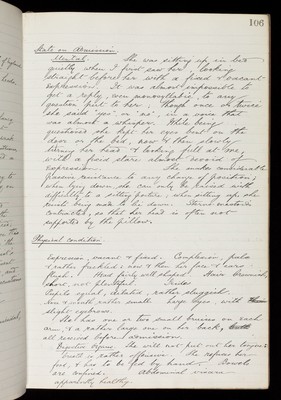 106
State on Admission.
Mental. She was sitting up in bed
quietly when I first saw her, looking
straight before her with a fixed & vacant
expression. It was almost impossible to
get a reply, even monosyllabic, to any
question put to her; though once or twice
she said 'yes' or 'no', in a voice that
was almost a whisper. While being
questioned she kept her eyes bent on the
door or the bed, now & then slowly
turning her head & looking full at one,
with a fixed stare almost devoid of
expression. She makes considerable
passive resistance to any change of position;
when lying down she can only be raised with
difficulty to a sitting posture; when sitting up, she
resists being made to lie down. Sterno-mastoids
contracted, so that her head is often not
supported by the pillow.
Physical condition
Expression, vacant & fixed. Complexion, pale
& rather freckled; now & then her face is very
Head fairly well shaped. Hair
short, not plentiful. Irides
Pupils equal, dilated, rather sluggish.
Nose & mouth rather small. Large eyes, with
slight eyebrows.
She has one or two small bruises on each
arm, & a rather large one on her back,
all received before admission.
Digestive Organs. She will not put out her tongue.
Breath is rather offensive. She refuses her
food, & has to be fed by hand. Bowels
are confined. Abdominal viscera
apparently healthy.